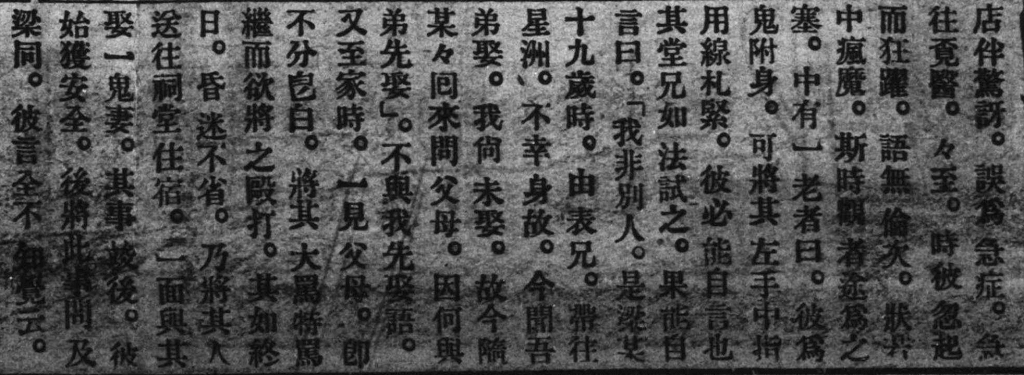 店伴驚訝。誤為急症。急
往覓醫。々至。時彼忽起
而狂躍。語無倫次。狀若
中瘋魔。斯時觀者途為之
塞。中有一老者曰。彼為
鬼附身。可將其左手中指
用線札緊。彼必能自言也
其堂兄如法試之。果能自
言曰。「我非別人。是梁某
十九歲時。由表兄。帶往
星洲、不幸身故。今聞吾
弟娶。我尙未娶。故今隨
某々囘來問父母。因何與
弟先娶」。不與我先娶語。
又至家時。一見父母。卽
不分皂白。將其大罵特罵
繼而欲將之毆打。其如終
日。昏迷不省。乃將其人
送往祠堂住宿。一面與其
娶一鬼妻。其事妥後。彼
始獲安全。後將此事問及
梁同。彼言全不知覺云。